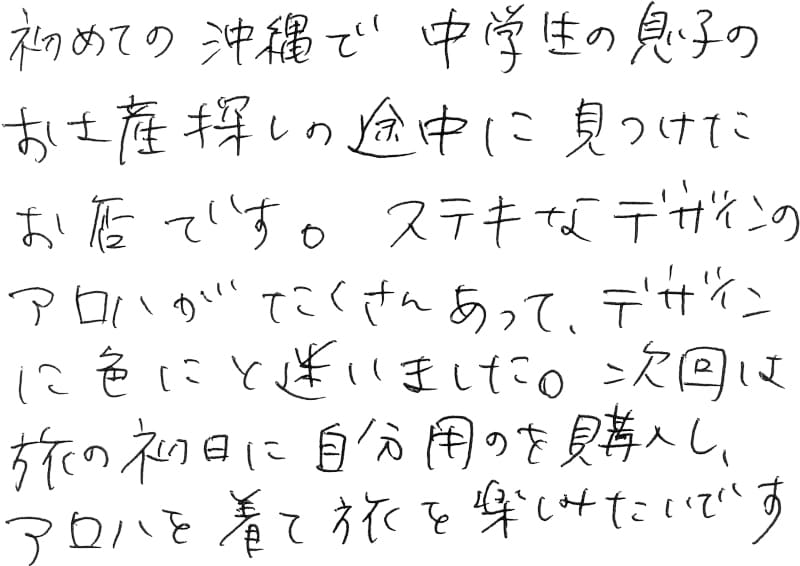 初めての沖縄で 中学生の息子の
お土産探しの途中に見つけた
お店です。ステキなデザインの
アロハがたくさんあって、デザイン
に色にと迷いました。次回は
旅の初日に自分用のを購入し、
アロハを着て旅を楽しみたいです